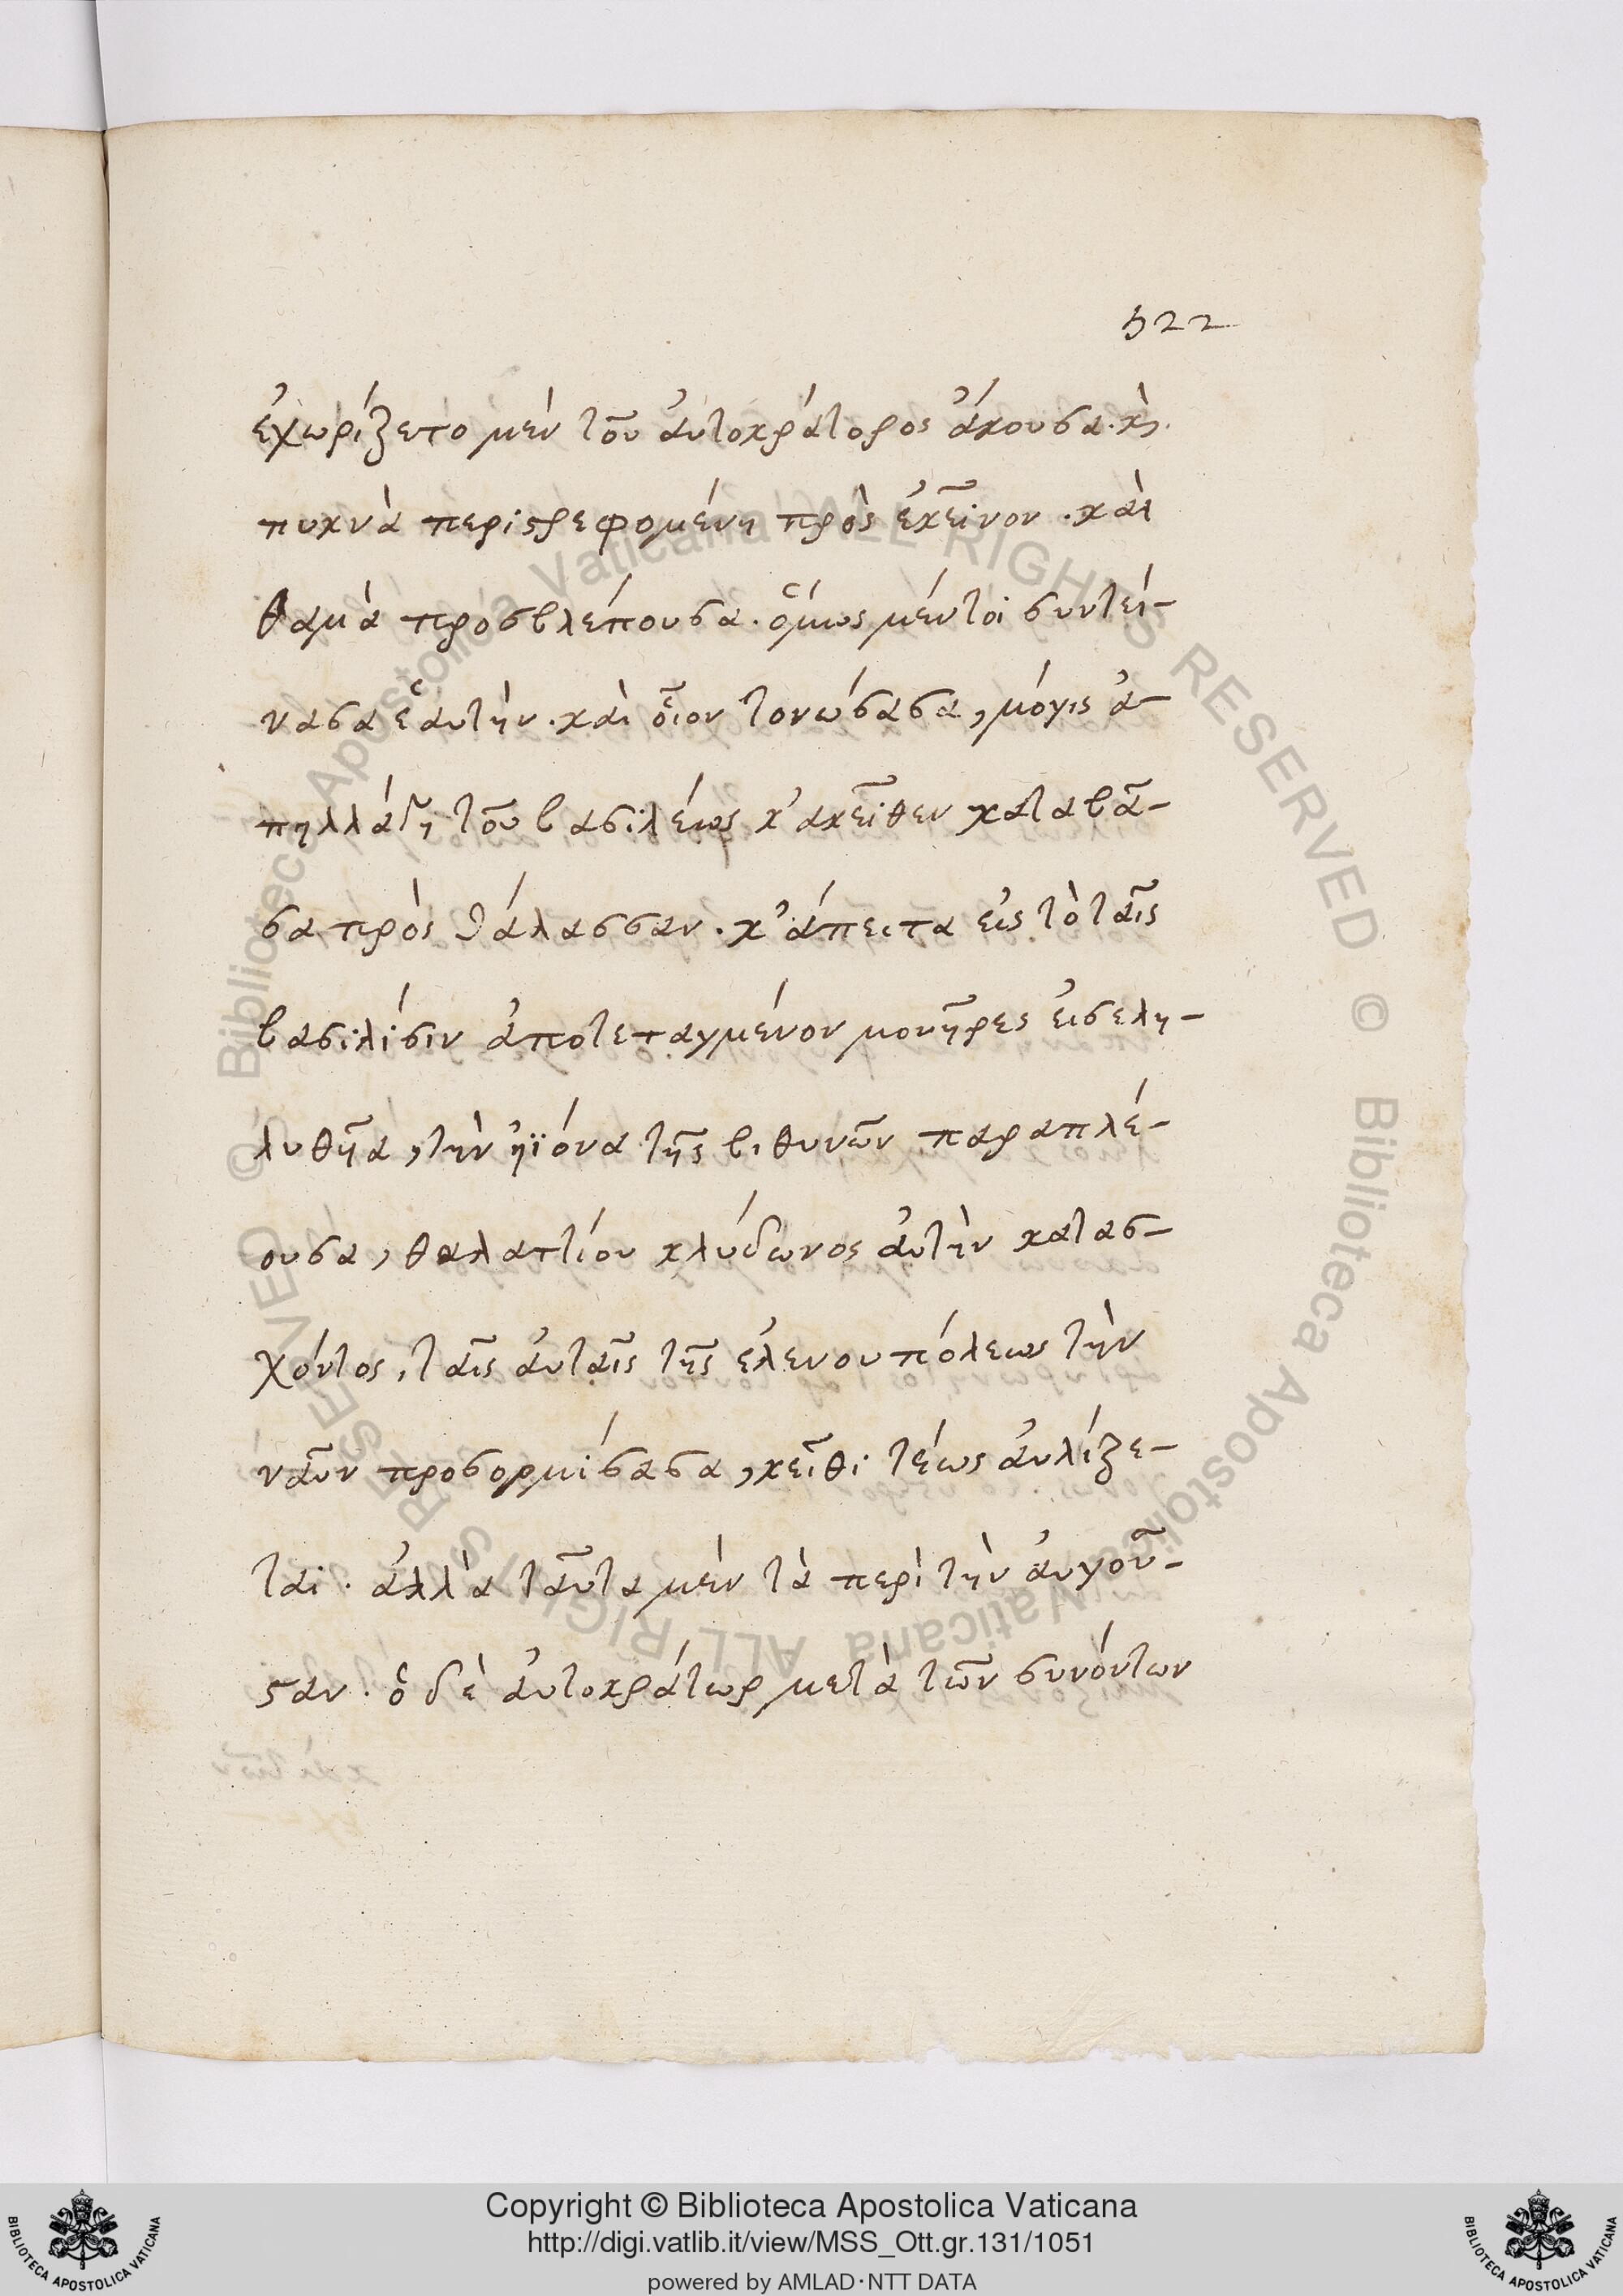 522
ἐχωρίζετο μὲν τοῦ ἀυτοκράτορος ἄκουσα. κὶ.
πυκνὰ περιστρεφομένη πρὸς ἐκεῖνον. καὶ
θαμὰ προσβλέπουσα. ὅμως μέντοι συντεί-
νασα ἑαυτὴν. καὶ οἷον τονώσασα, μόγις ἀ-
πηλλάγη τοῦ βασιλέως κ᾽ακεῖθεν καταβᾶ-
σα πρὸς θάλασσαν. κ᾽άπειτα εἰς τὸ ταῖς
βασιλίσιν ἀποτεταγμένον μονῆρες ἐισελη-
λυθῆα, τὴν ἠϊόνα τῆς βιθυνῶν παραπλέ-
ουσα, θαλαττίου κλύδωνος ἀυτὴν κατασ-
χόντος, ταῖς ἀυταῖς τῆς ἑλενουπόλεως τὴν
ναῦν προσορμίσασα, κεῖθι τέως ἀυλίζε-
ται. ἀλλὰ ταῦτα μὲν τὰ περὶ τὴν ἀυγοῦ-
σταν. ὁ δὲ ἀυτοκράτωρ μετὰ τῶν συνόντων
© Biblioteca Apostolica Vaticana ALL RIGHTS RESERVED © Biblioteca Apostolica Vaticana ALL RIGHTS RESERVED
Copyright © Biblioteca Apostolica Vaticana
http://digi.vatlib.it/view/MSS_Ott.gr.131/1051
powered by AMLAD·NTT DATA
BIBLIOTECA APOSTOLICA VATICANA
BIBLIOTECA APOSTOLICA VATICANA